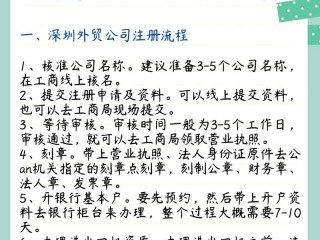 一、深圳外贸公司注册流程
1、核准公司名称。建议准备3-5个公司名称，
在工商线上核名。
2、提交注册申请及资料。可以线上提交资料，
也可以去工商局现场提交。
3、等待审核。审核时间一般为3-5个工作日，
审核通过，就可以去工商局领取营业执照。
4、刻章。带上营业执照、法人身份证原件去公
an机关指定的刻章点刻章，刻制公章、财务章、
法人章、发票章。
5、开银行基本户。要先预约，然后带上开户资
料去银行柜台来办理，整个过程大概需要7-10
天。